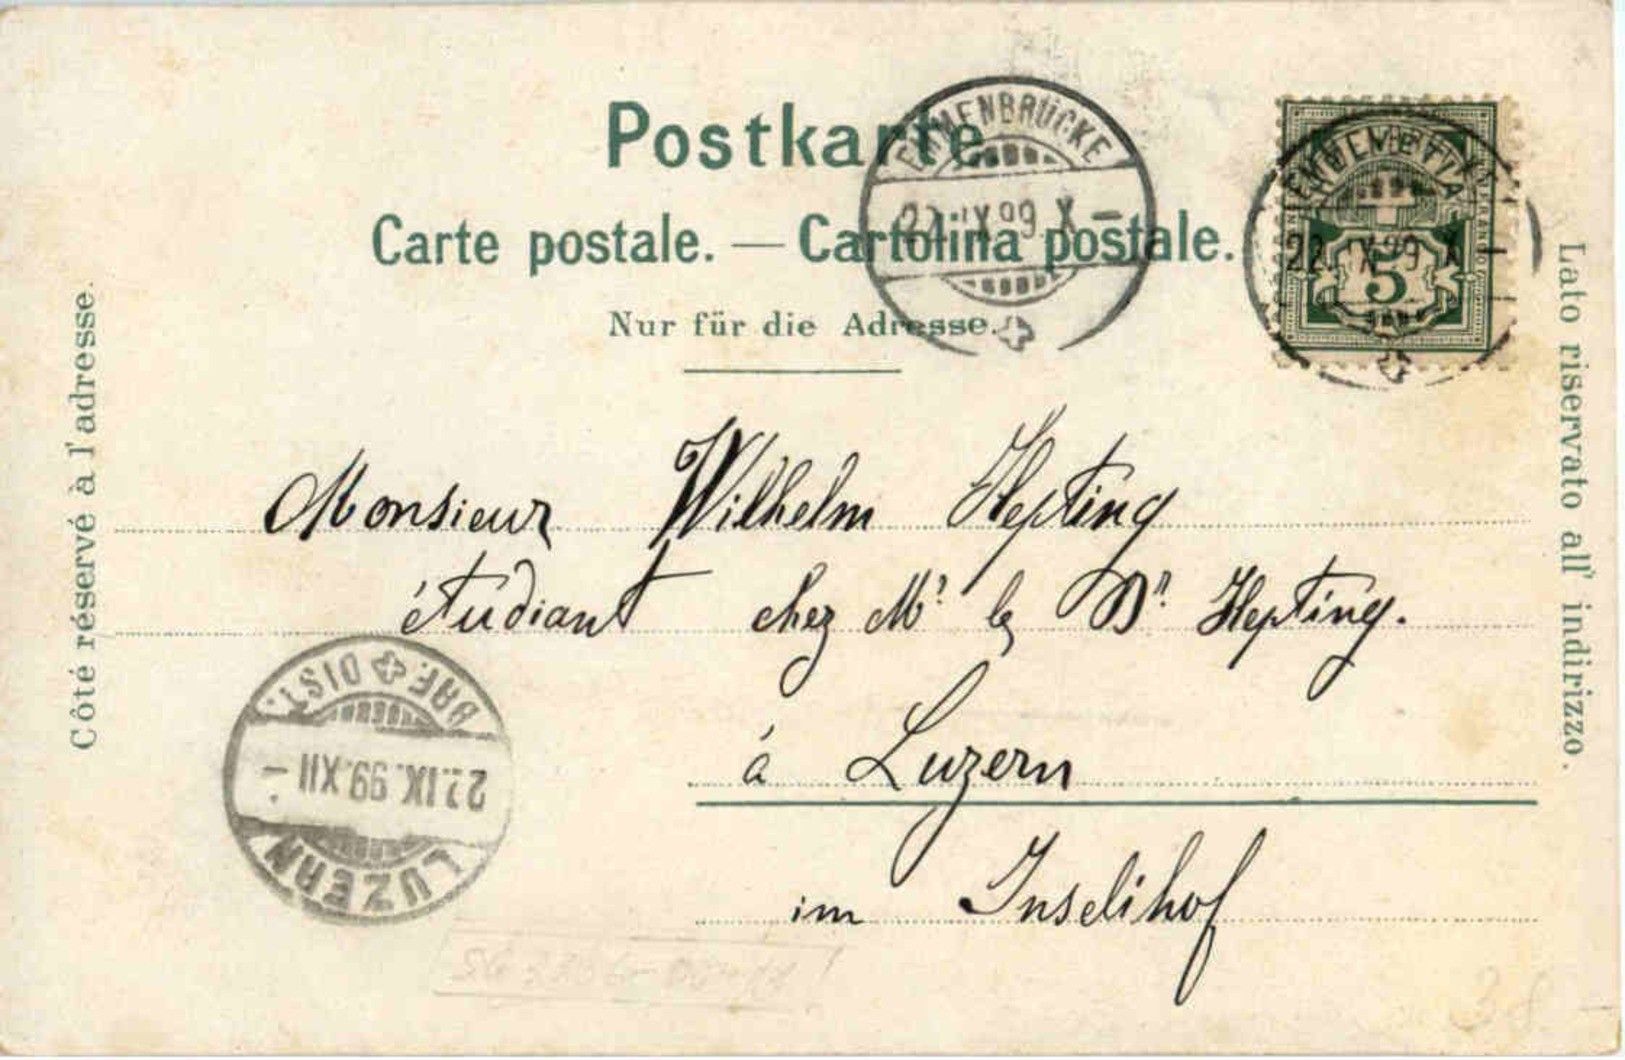 Postkarte
Carte postale. — Cartolina postale.
Nur für die Adresse.
EMMENBRÜCKE
22. IX 99 X –
22. IX 99 X –
5
Côté réservé à l'adresse.
Lato riservato all' indirizzo.
Monsieur Wilhelm Hepting
étudiant chez Mr le Dr. Hepting.
à Luzern
im Inselihof
BRF. DIST.
22.IX.99.XII –
LUZERN
38